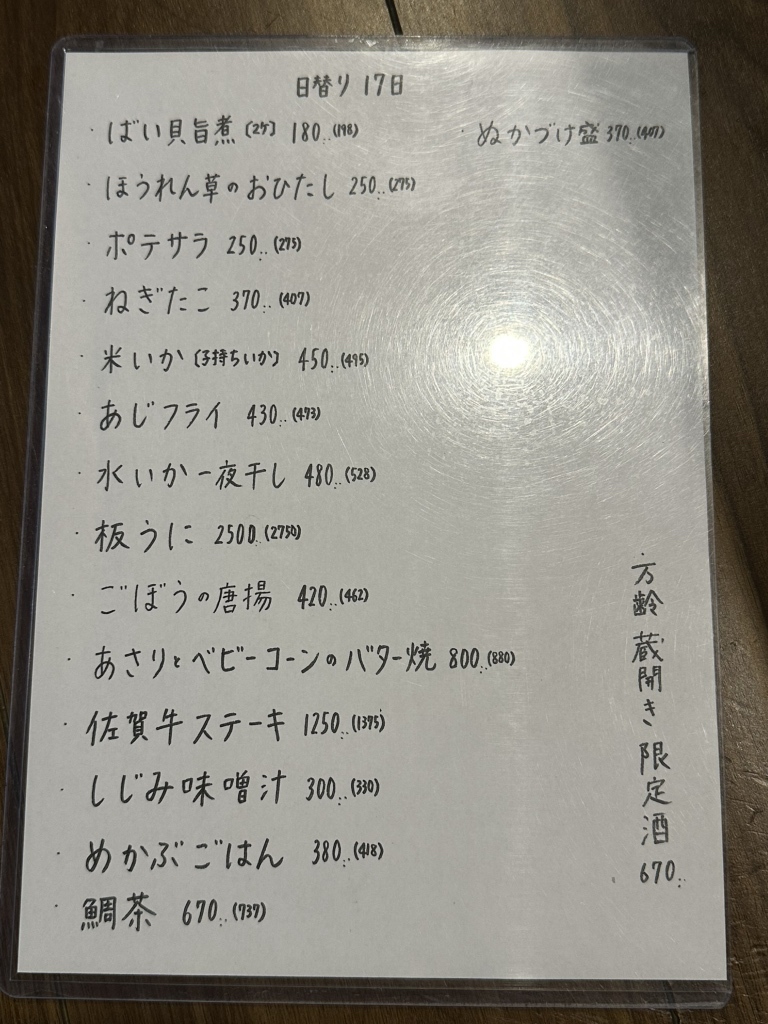 日替り 17日
・ばい貝旨煮(2ケ) 180..(198)
・ぬかづけ盛 370..(407)
・ほうれん草のおひたし 250..(275)
・ポテサラ 250..(275)
・ねぎたこ 370..(407)
・米いか(子持ちいか) 450..(495)
・あじフライ 430..(473)
・水いか一夜干し 480..(528)
・板うに 2500..(2750)
・ごぼうの唐揚 420..(462)
・あさりとベビーコーンのバター焼 800..(880)
・佐賀牛ステーキ 1250..(1375)
・しじみ味噌汁 300..(330)
・めかぶごはん 380..(418)
・鯛茶 670..(737)
・万齢 蔵開き 限定酒 670..